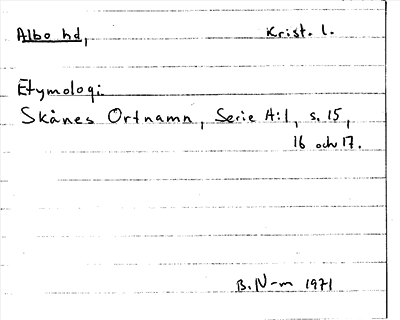 Albo hd, Krist. l.
Etymologi
Skånes Ortnamn, Serie A:1, s. 15,
16 och 17.
B. N-m 1971